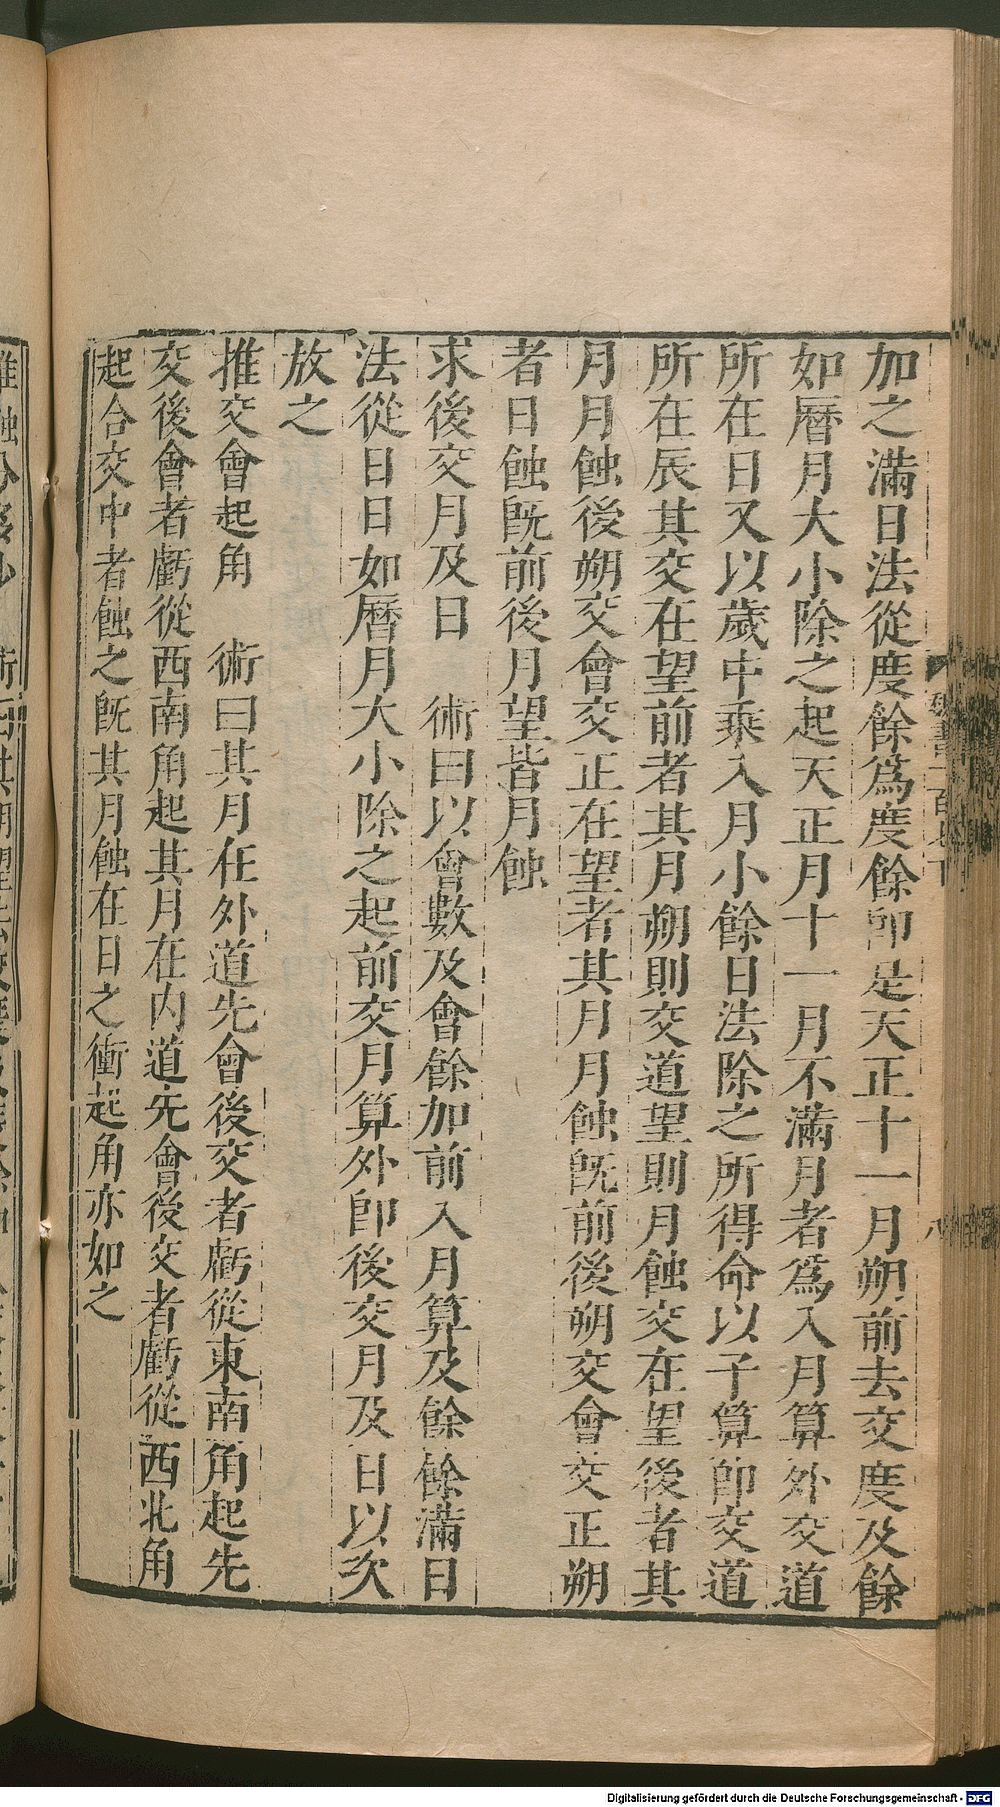 加之滿日法從度餘爲度餘卽是天正十一月朔前去交度及餘
如曆月大小除之起天正月十一月不滿月者爲入月算外交道
所在日又以歲中乘入月小餘日法除之所得命以子算卽交道
所在辰其交在望前者其月朔則交道望則月蝕交在望後者其
月月蝕後朔交會交正在望者其月月蝕旣前後朔交會交正朔
者日蝕旣前後月望皆月蝕
求後交月及日　術曰以會數及會餘加前入月算及餘餘滿日
法從日日如曆月大小除之起前交月算外卽後交月及日以次
放之
推交會起角　術曰其月在外道先會後交者虧從東南角起先
交後會者虧從西南角起其月在內道先會後交者虧從西北角
起合交中者蝕之旣其月蝕在日之衝起角亦如之
魏書一百七下
八
Digitalisierung gefördert durch die Deutsche Forschungsgemeinschaft - DFG